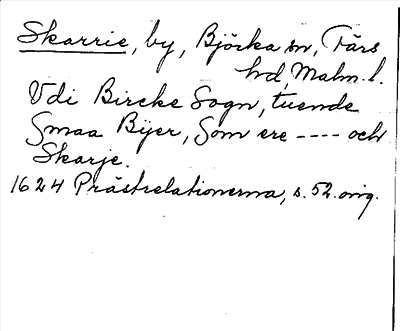 Skarrie, by, Björka sn, Färs
hd, Malm. l.
Vdi Bircke Sogn, tuende
Smaa Bÿer, Som ere ---- och
Skarje.
1624 Prästrelationerna, s. 52. orig.